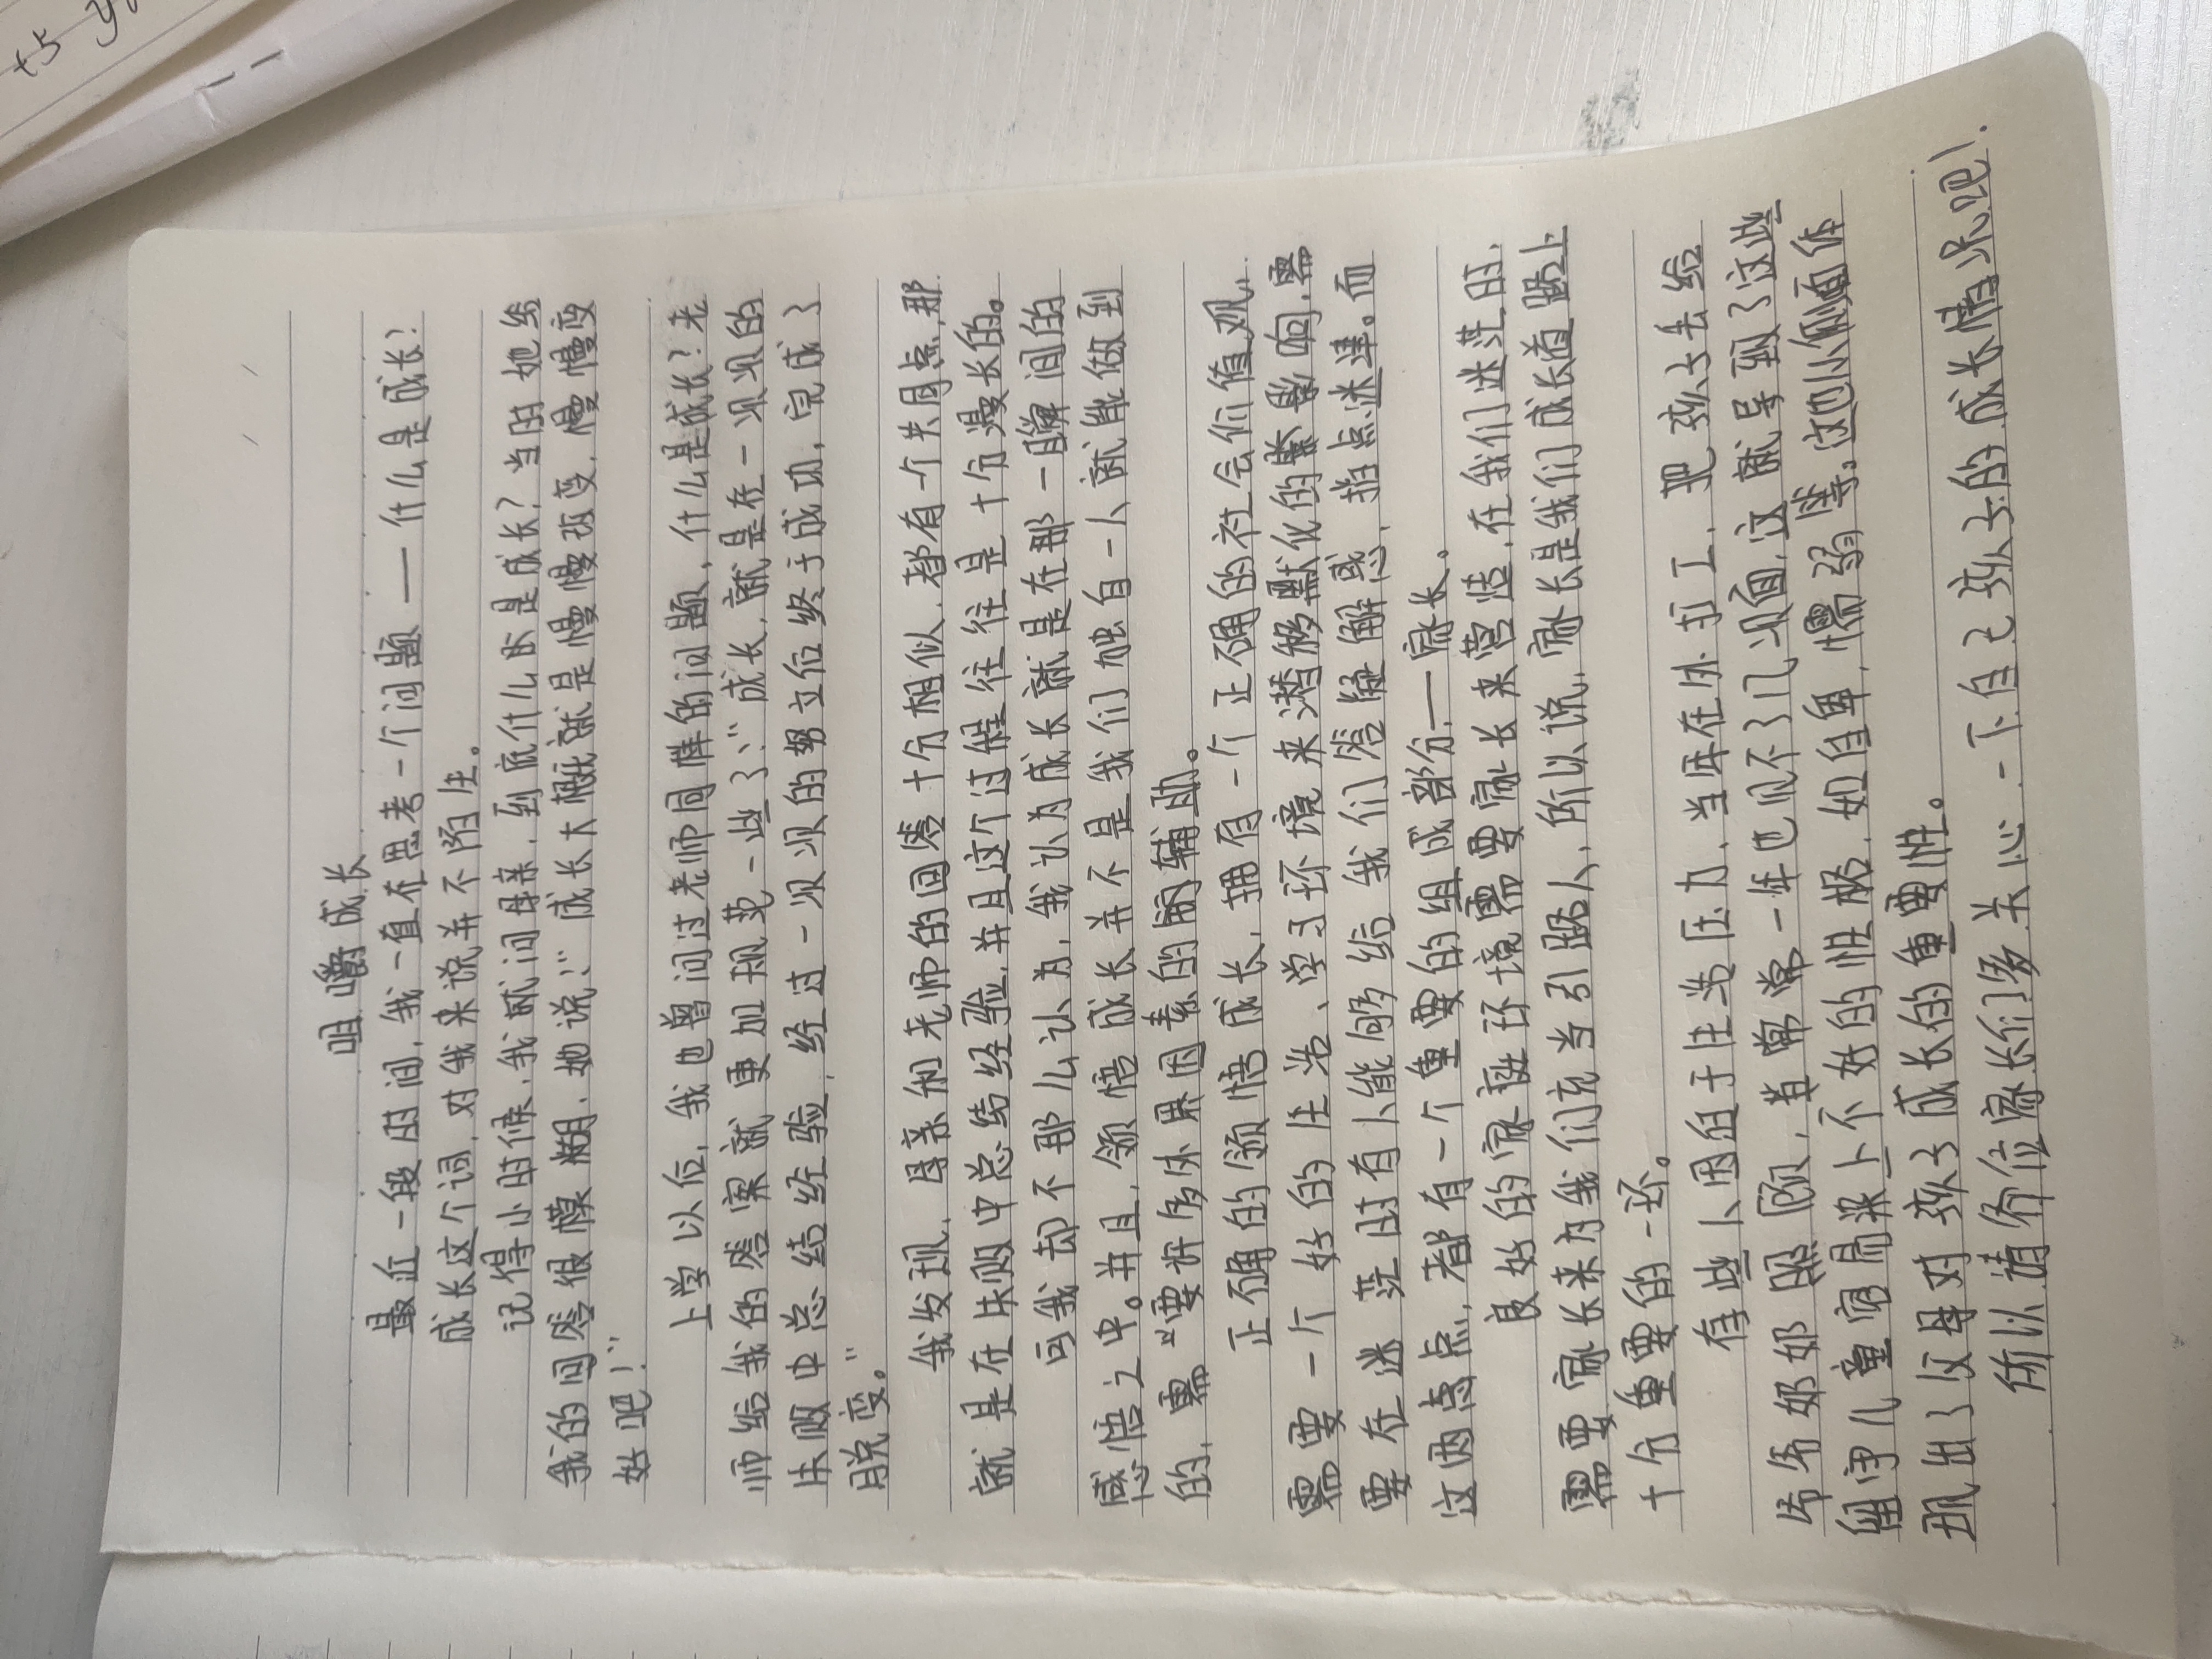 咀嚼成长
最近一段时间,我一直在思考一个问题——什么是成长?
成长这个词,对我来说并不陌生。
记得小时候,我就问母亲,到底什么才是成长?当时她给
我的回答很模糊,她说:“成长大概就是慢慢改变,慢慢变
好吧!”
上学以后,我也曾问过老师同样的问题,什么是成长?老
师给我的答案就更加规范一些了:“成长,就是在一次次的
失败中总结经验,经过一次次的努力后终于成功,完成了
脱变。”
我发现,母亲和老师的回答十分相似,都有一个共同点,那
就是在失败中总结经验,并且这个过程往往是十分漫长的。
可我却不那么认为,我认为成长就是在那一瞬间的
感悟之中。并且,领悟成长并不是我们独自一人就能做到
的,需要许多外界因素的辅助。
正确的领悟成长,拥有一个正确的社会价值观,
需要一个好的生活、学习环境来潜移默化的影响,需
要在迷茫时有人能够给我们答疑解惑,指点迷津。而
这两点,都有一个重要的组成部分——家长。
良好的家庭环境需要家长来营造,在我们迷茫时,
需要家长来为我们充当引路人,所以说,家长是我们成长道路上
十分重要的一环。
有些人因迫于生活压力,常年在外打工,把孩子丢给
爷爷奶奶照顾,甚常常一年也见不了几次面,这就导致了这些
留守儿童容易染上不好的性格,如自卑,懦弱等。这也从侧面体
现出了父母对孩子成长的重要性。
所以请各位家长们多关心一下自己孩子的成长情况吧!